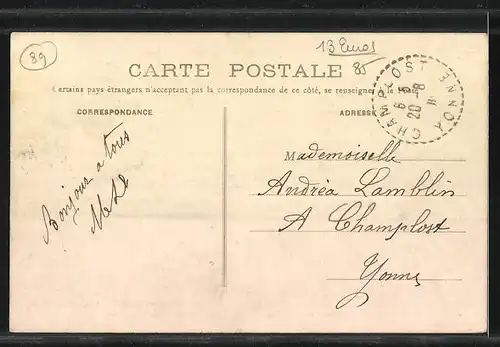 89
13 Euros
85
CARTE POSTALE
Certains pays étrangers n'acceptant pas la correspondance de ce côté, se renseigner à la
CORRESPONDANCE
ADRESSE
CHAMPLOST YONNE
20 8
Bonjour a tous
Mademoiselle
Andréa Lamblin
A Champlost
Yonne